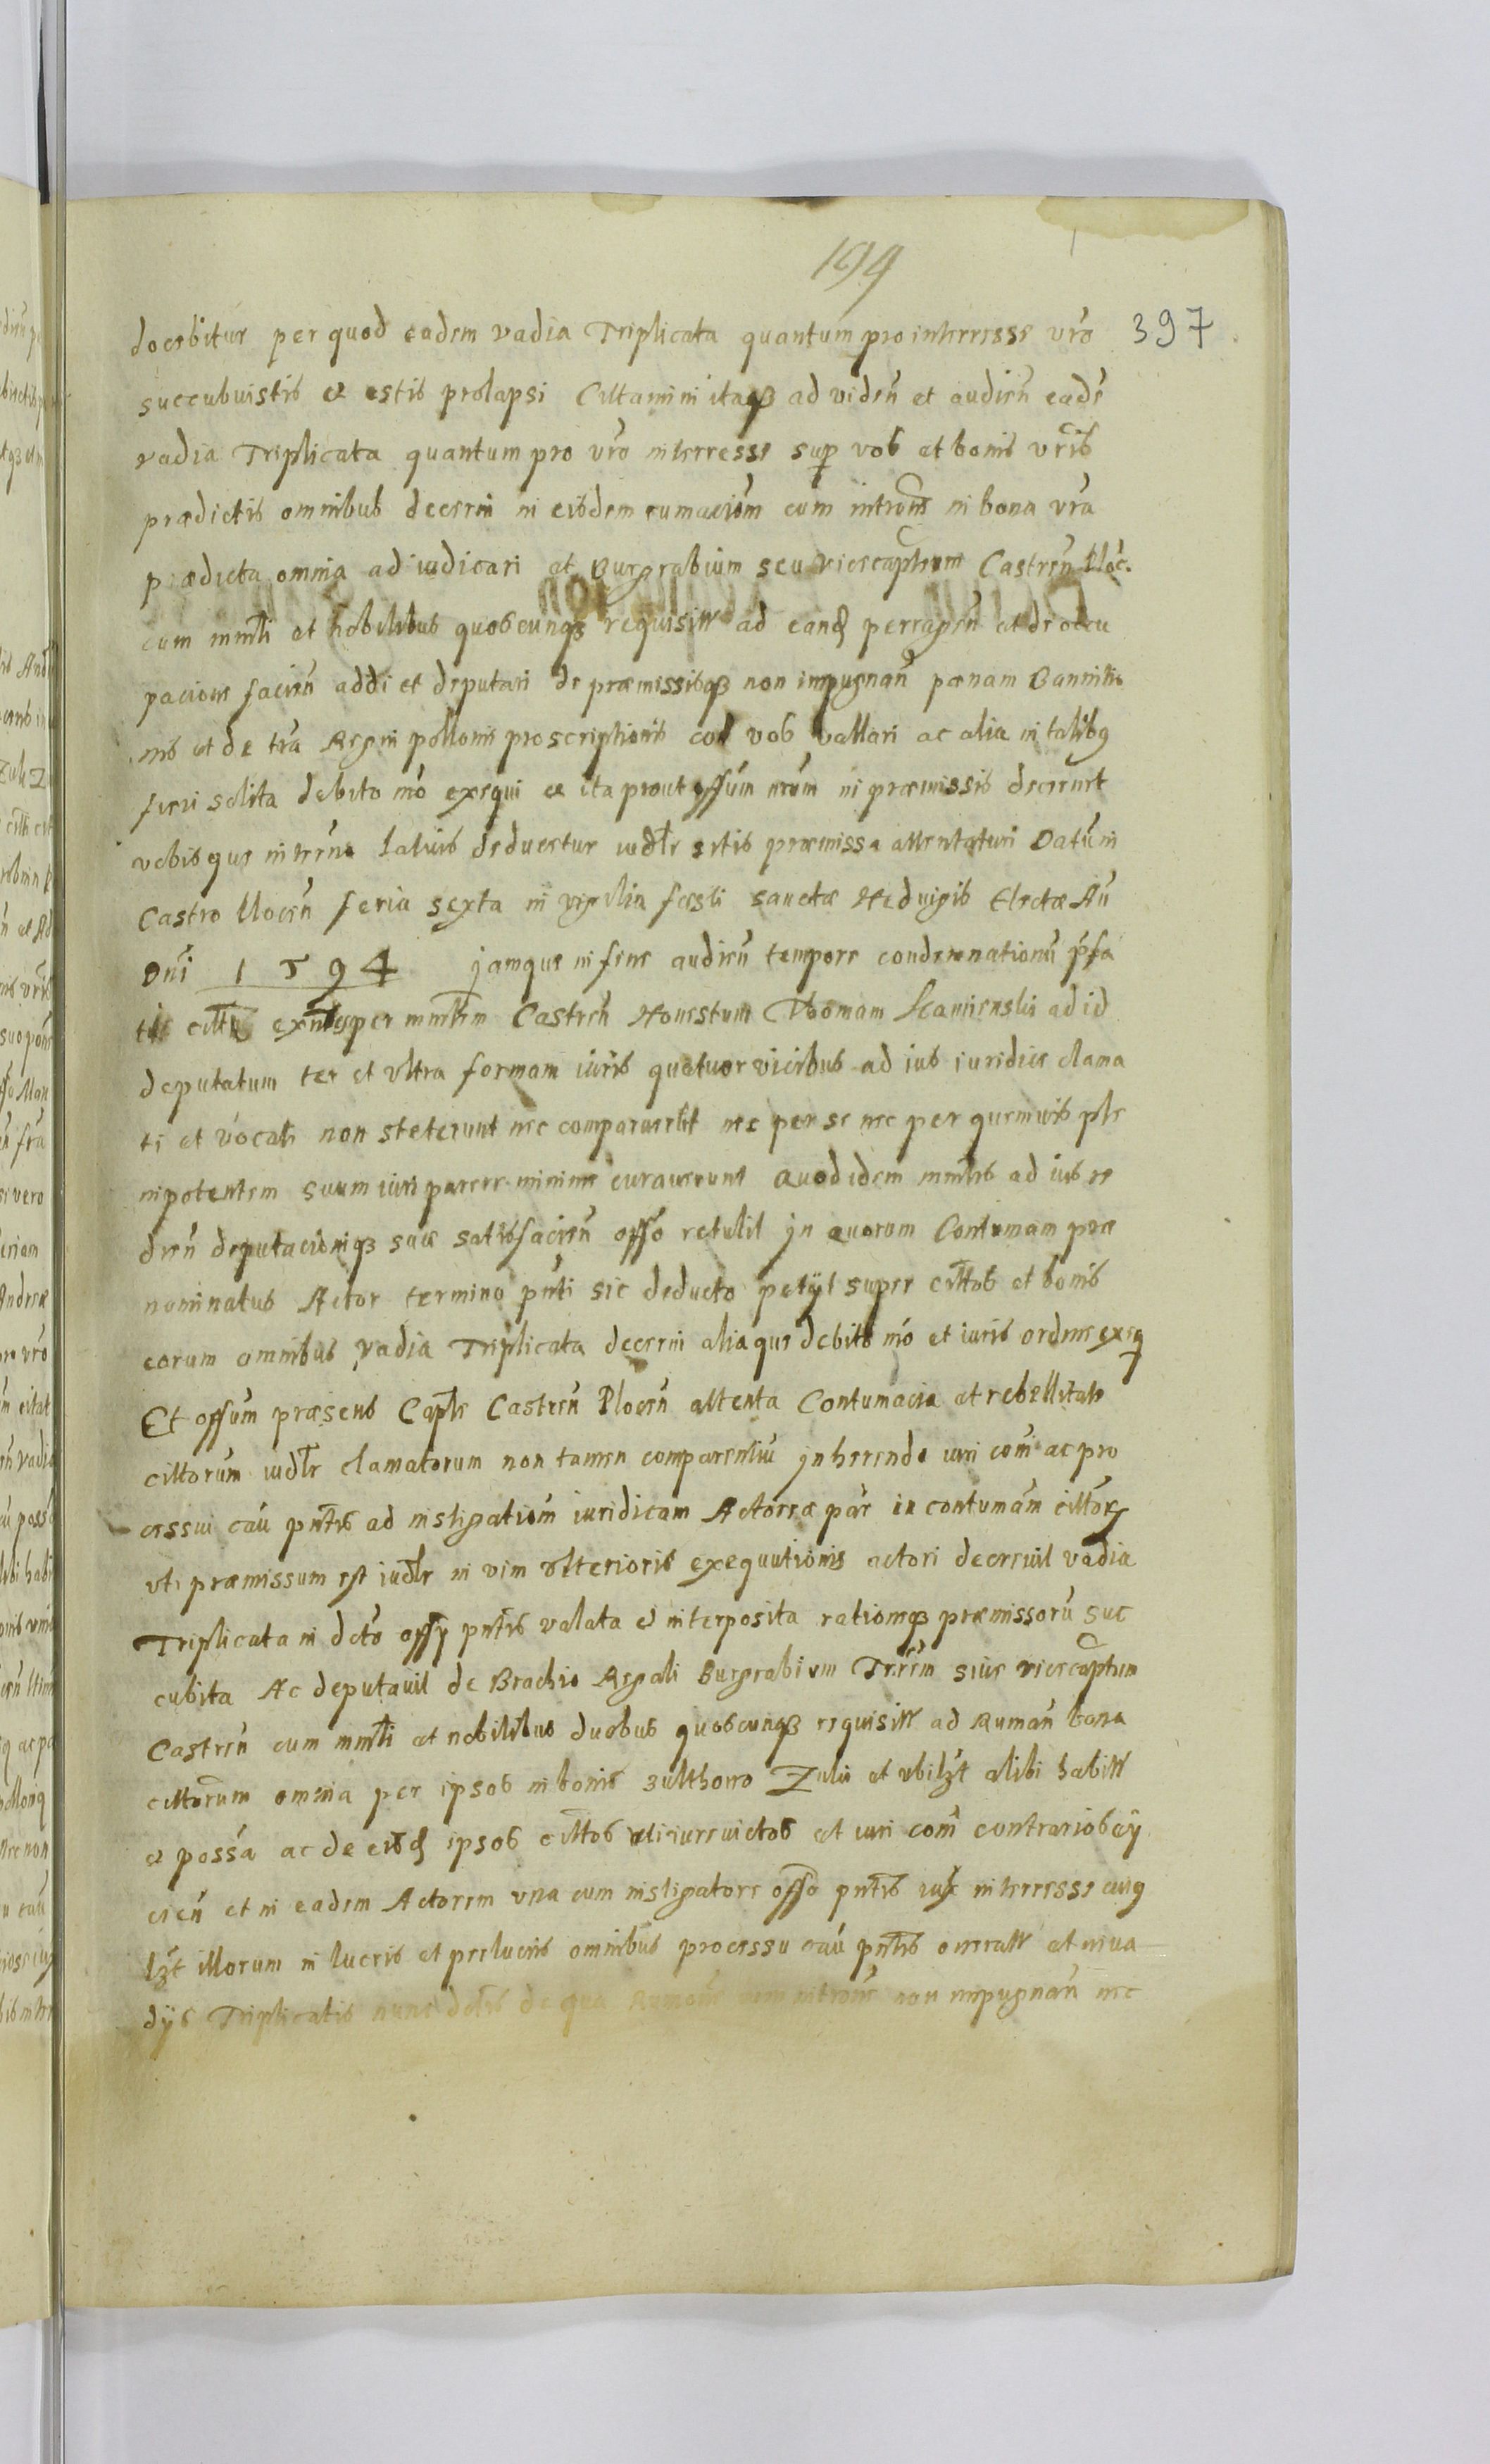 194
397
docebitur per quod eadem vadia Triplicata quantum pro interresse vro
succubuistis et estis prolapsi Cittamini itaq3 ad viden et audien eade
vadia Triplicata quantum pro vro interresse sup vos et bonis vris
prædictis omnibus decerni in eisdem rumaciom cum introm in bona vra
prædicta omnia adiudicari et Burgrabium seu vicecaptneum Castren Ploc.
cum mmli et nobilibus quoscunq3 requisitt ad eand perragen et de occu
pacione facien addi et deputari de præmissisq3 non impugnan pœnam Bannitio
nis et de tra Regni pollonis proscriptionis cod vos vallari ac alia in talibq
fieri solita debito mo exequi et ita prout offum nrum in præmissis decernet
vobisque interne latius deducetur iudlr estis præmissa attentaturi Datum in
Castro Plocen feria sexta in vigilia festi sanctæ Heduigis Electæ An
Dni 1594 jamque in fine audien tempore condemnationu pfa
ti citti exntes per mmlrem Castren Honestum Thomam Kamienski ad id
deputatum ter et vltra formam iuris quatuor vicibus ad ius iuridice clama
ti et vocati non steterunt nec comparuerut nec per se nec per quemuis ple
nipotentem suum iuri parere minime curauerunt Quod idem mmlis ad ius re
dien deputacioniq3 suæ satisfacien offo retulit jn quorum Contumam præ
nominatus Actor termino pnti sic deducto petijt super cittos et bonis
eorum omnibus vadia Triplicata decerni aliaque debito mo et iuris ordine exeq
Et offum præsens Captle Castren Plocen attenta Contumacia et rebellitate
cittorum iudlr clamatorum non tamen comparentiu jnherendo iuri com ac pro
cessui cau pntis ad instigatiom iuridicam Actorea par in contumam cittor
vti præmissum est iudlr in vim vlterioris exequutionis actori decreuit vadia
Triplicata in dcto offy pntis valata et interposita rationeq3 præmissoru suc
cubita Ac deputauit de Brachio Regali Burgrabium Trrem siue vicecaptum
Castren cum mmli et nobilibus duobus quoscunq3 requisitt ad Ruman bona
cittorum omnia per ipsos in bonis zulthowo Zulu et vbilzt alibi habitt
et possa ac de eisd ipsos cittos vti iure victos et iuri com contrarios eij
cien et in eadem Actorem vna cum instigatore offo pntis iux interresse cuiq
lzt illorum in lucris et perlucris omnibus processu cau pntis oneratt et in va
dijs Triplicatis nunc dctis de qua Rumaone non impugnan nec